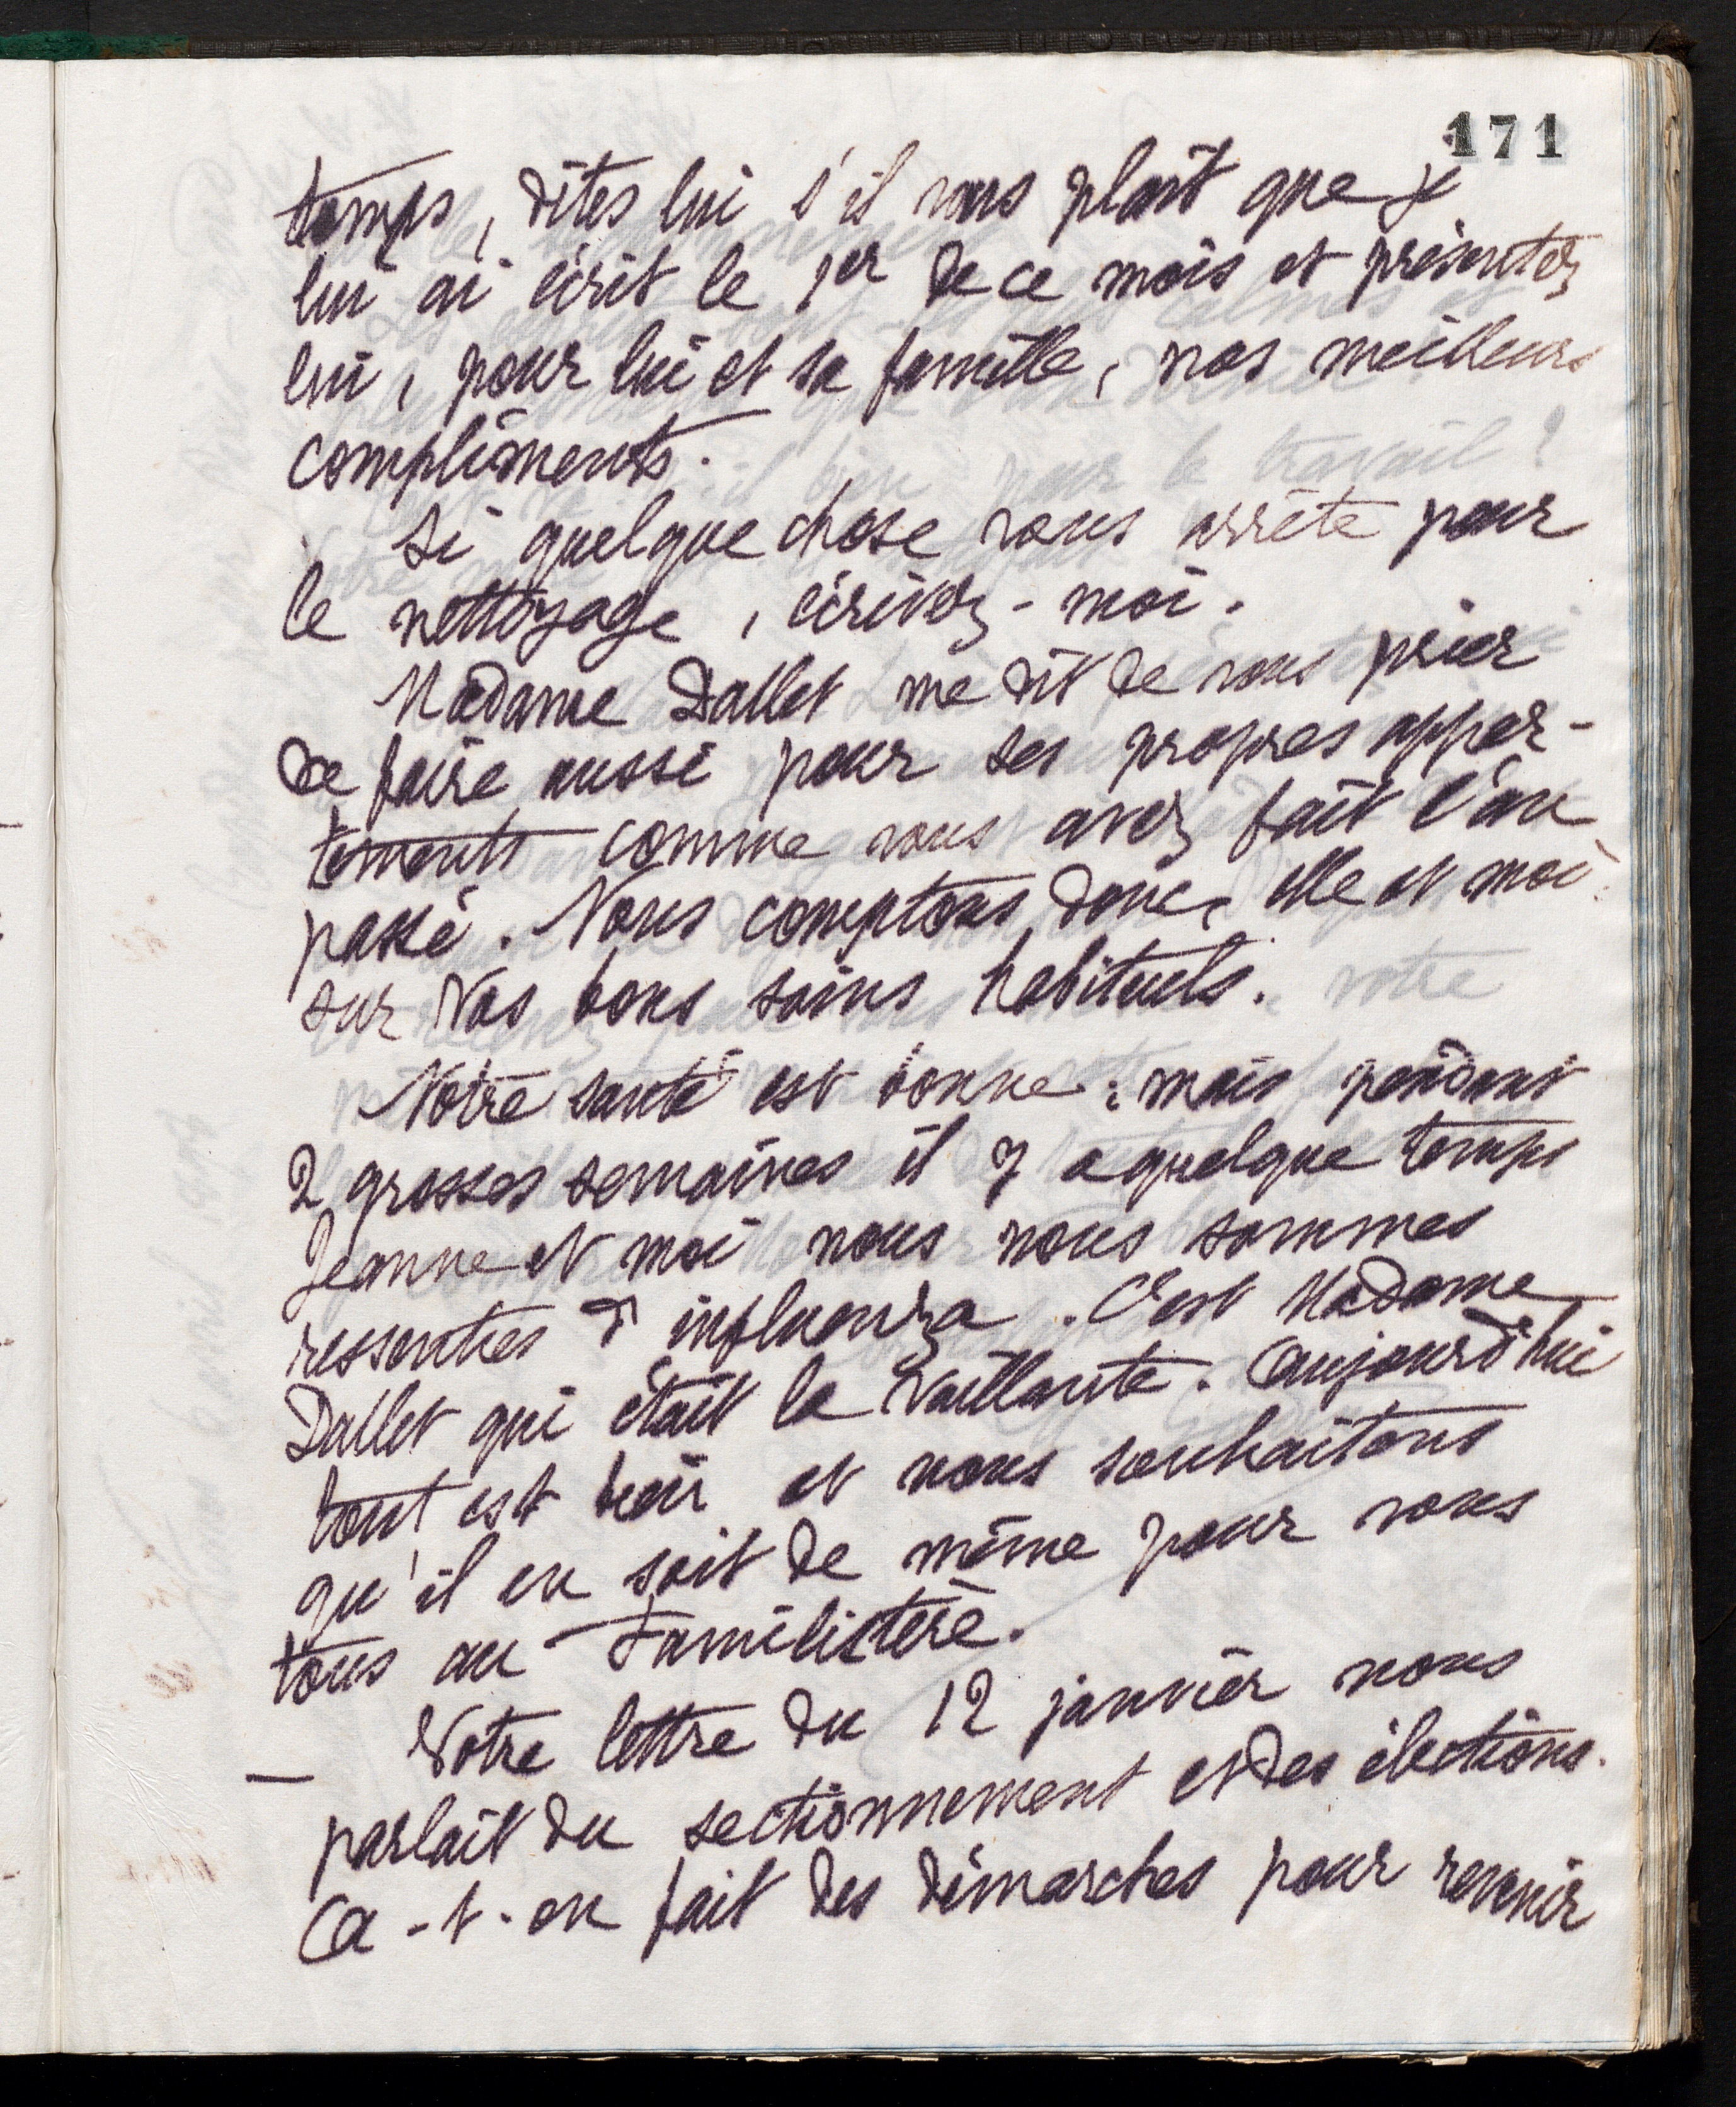 171
temps, dites lui s'il vous plaît que je
lui ai écrit le 1er de ce mois et présentez
lui, pour lui et sa famille, nos meilleurs
compliments.
Si quelque chose vous arrête pour
le nettoyage, écrivez-moi.
Madame Dallet me dit de vous prier
de faire aussi pour ses propres appar-
tements comme vous avez fait l'an
passé. Nous comptons donc, elle et moi
sur vos bons soins habituels.
Notre santé est bonne ; mais pendant
2 grosses semaines il y a quelque temps
Jeanne et moi nous nous sommes
ressenties d'influenza. C'est Madame
Dallet qui était la vaillante. Aujourd'hui
tout est bien et nous souhaitons
qu'il en soit de même pour vous
tous au Familistère.
— Votre lettre du 12 janvier nous
parlait du sectionnement et des élections.
A-t-on fait des démarches pour revenir